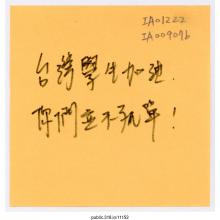 IA01222
IA009096
台灣學生加油.
你們並不孤單!
public.318.io/11153